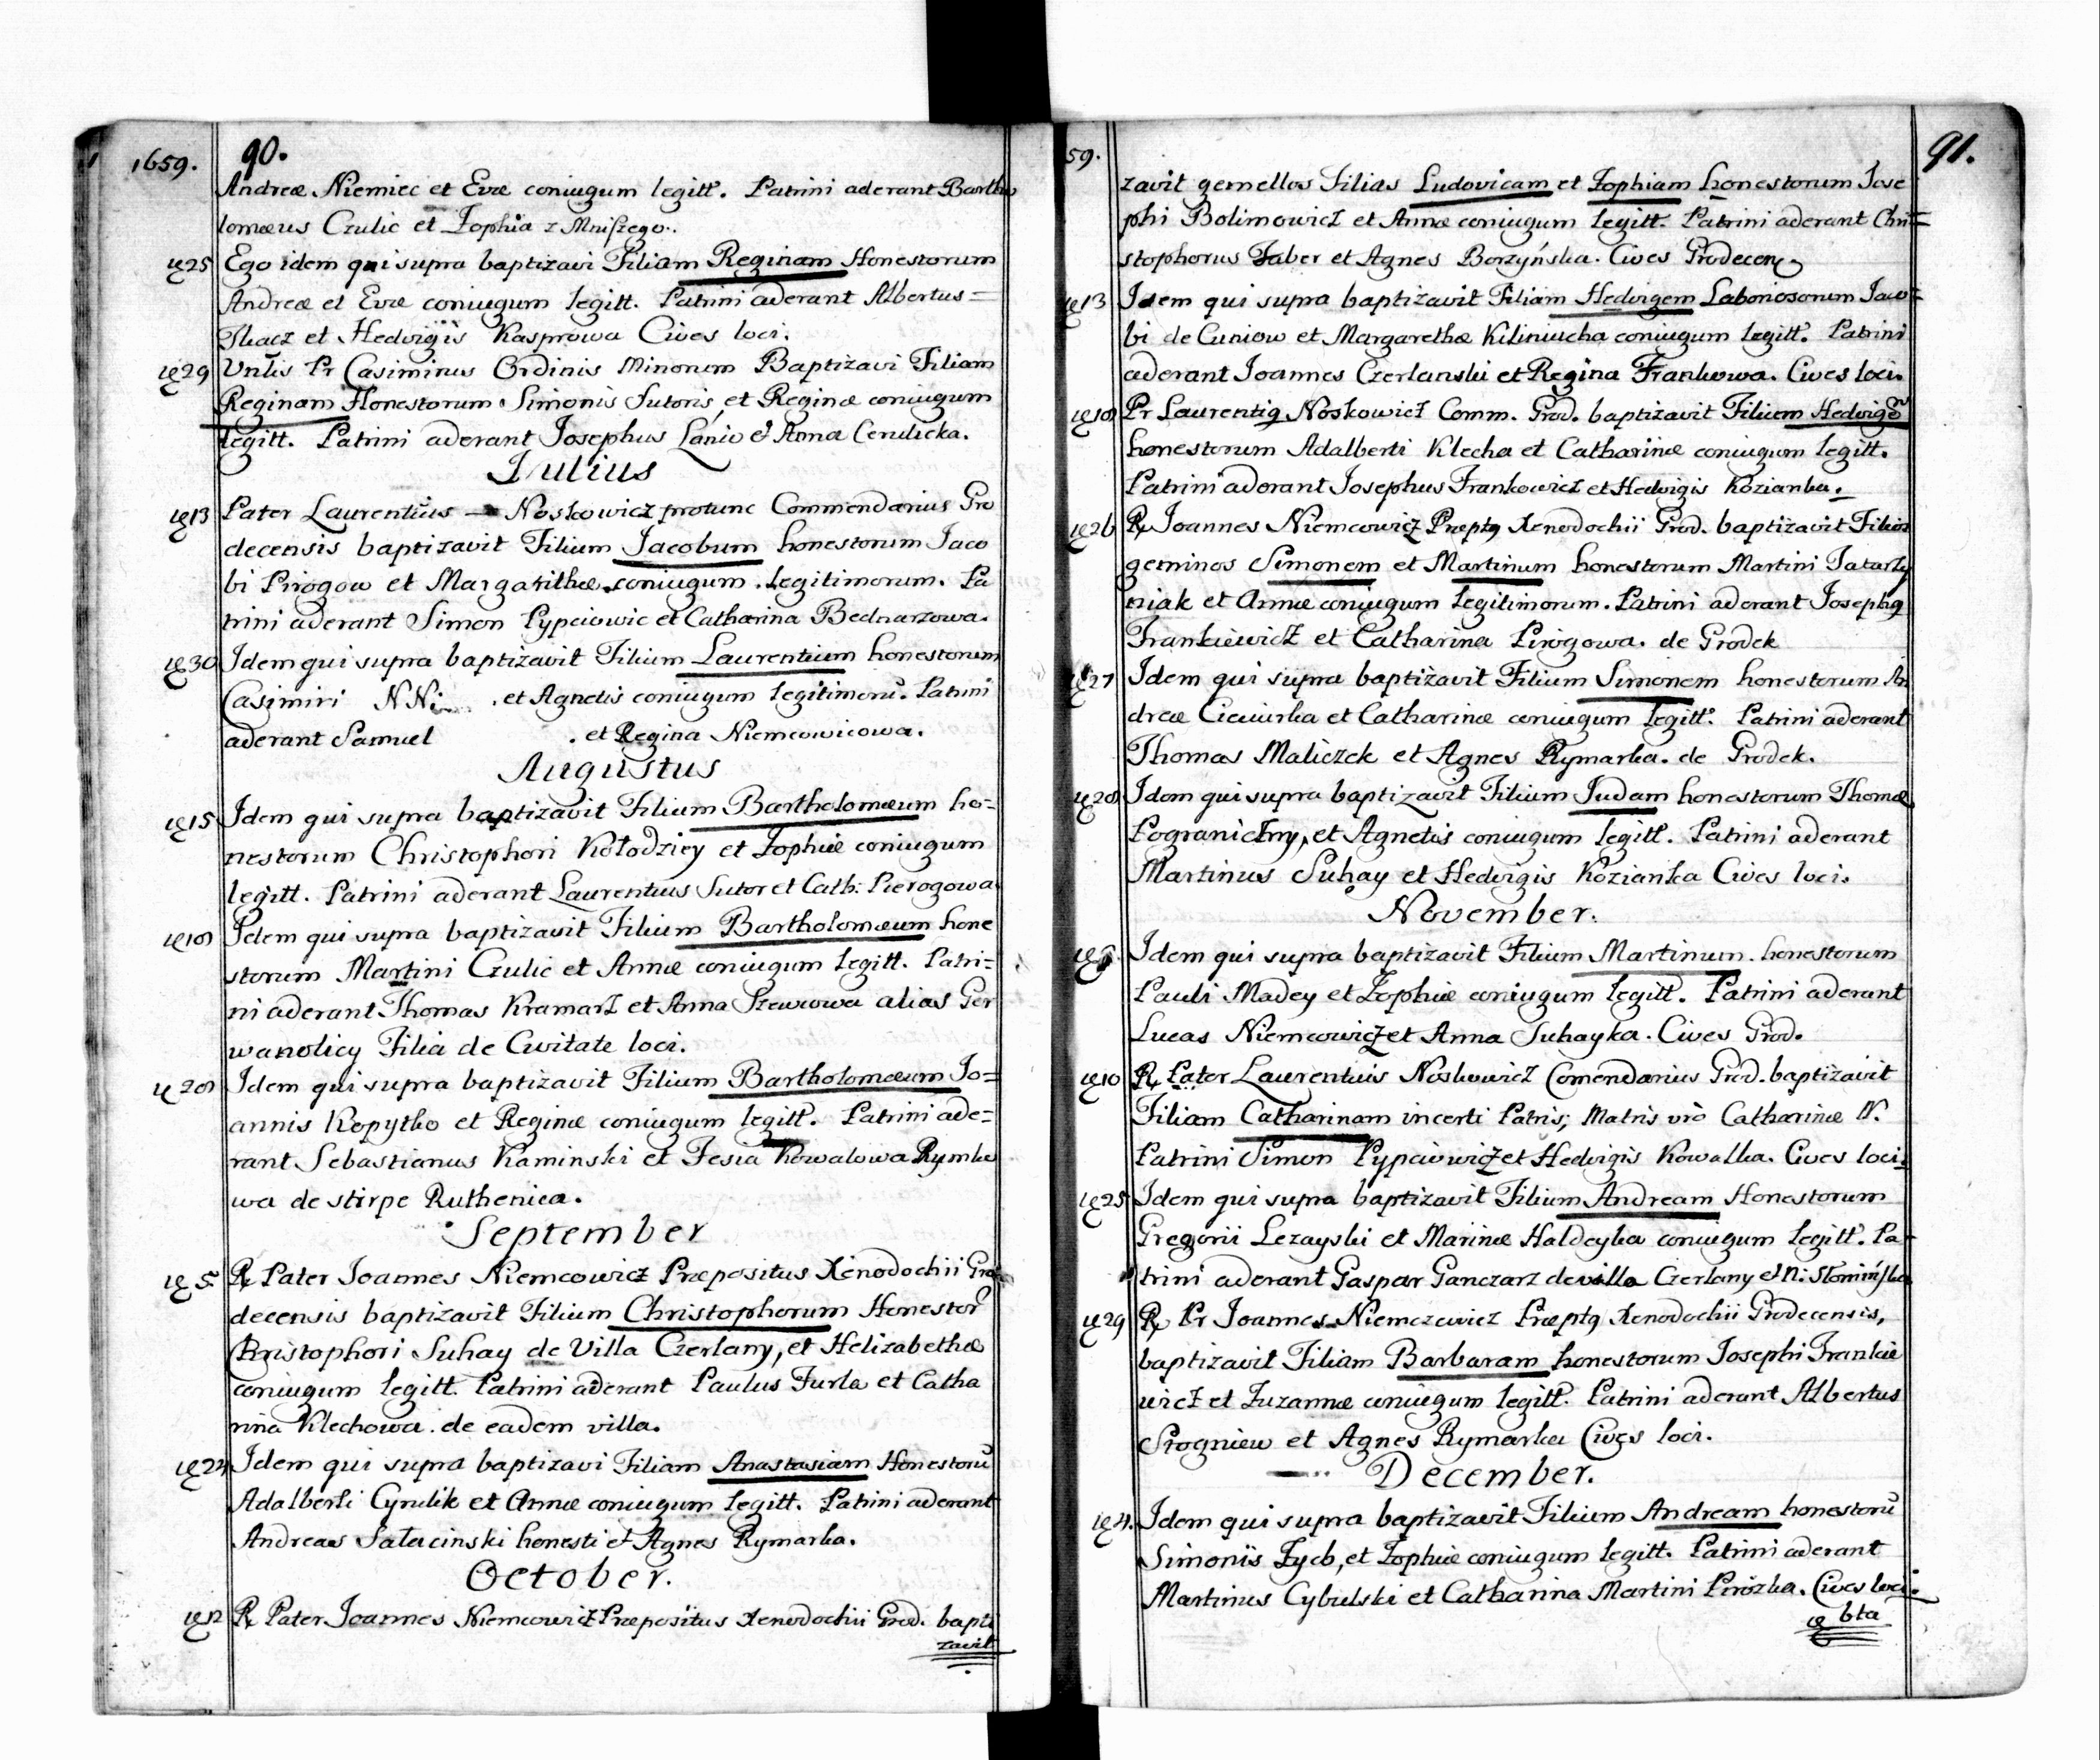 1659. 90.
Andreæ Niemiec et Evæ coniugum legitt. Patrini aderant Bartho
lomæus Czulic et Zophia z Mniszego.
25 Ego idem qui supra baptizavi Filiam Reginam Honestorum
Andreæ et Evæ coniugum legitt. Patrini aderant Albertus=
Tkacz et Hedvigis Kasprowa Cives loci.
29 Pr Casimirus Ordinis Minorum Baptizavi Filiam
Reginam Honestorum Simonis Sutoris et Reginæ coniugum
legitt. Patrini aderant Josephus Lanio et Anna
Julius
13 Pater Laurentius Noskowicz protunc Commendarius Gro
decensis baptizavit Filium Jacobum honestorum Jaco
bi Pirogow et Margarithæ coniugum legitimorum. Pa
trini aderant Simon Pypciowic et Catharina Bednarzowa.
30 Idem qui supra baptizavit Filium Laurentium honestorum
Casimiri et Agnetis coniugum legitimorū. Patrini
aderant Samuel . et Regina Niemcowicowa.
Augustus
15 Idem qui supra baptizavit Filium Bartholomæum ho=
nestorum Christophori Kołodziey et Zophiæ coniugum
legitt. Patrini aderant Laurentius Sutor et Cath: Pierogowa
Idem qui supra baptizavit Filium Bartholomæum hone
storum Martini Czulic et Annæ coniugum legitt. Patri=
ni aderant Thomas Kramarz et Anna Szewcowa alias Ger
wanolicy Filia de Civitate loci.
Idem qui supra baptizavit Filium Bartholomæum Jo=
annis Kopytko et Reginæ coniugum legitt. Patrini ade=
rant Sebastianus Kaminski et Fesia Kowalowa Rymko
wa de stirpe Ruthenica.
September
5 Pater Joannes Niemcowicz Præpositus Xenodochii Gro
decensis baptizavit Filium Christophorum Honestor
Christophori Suhay de Villa Czerlany, et Helizabethæ
coniugum legitt. Patrini aderant Paulus Furla et Catha
rina Klechowa de eadem villa.
Idem qui supra baptizavi Filiam Anastasiam Honestorū
Adalberti Cyrulik et Annæ coniugum legitt. Patrini aderant
Andreas Salacinski honesti et Agnes Rymarka.
October.
Pater Joannes Niemcowicz Præpositus Xenodochii Grod. bapti
zavit
59. 91.
zavit gemellos Filias Ludovicam et Zophiam honestorum Jose
phi Bolimowicz et Annæ coniugum legitt. Patrini aderant Chri=
stophorus Faber et Agnes Borzyńska. Cives Grodecen
13 Idem qui supra baptizavit Filiam Hedvigem Laboriosorum Jaco=
bi de Cuniow et Margarethæ Kiliniucha coniugum legitt. Patrini
aderant Joannes Czerlanski et Regina Frankowa. Cives loci.
Pr Laurentig Noskowicz Comm. Grod. baptizavit Filium Hedvigē
honestorum Adalberti Klecha et Catharinæ coniugum legitt.
Patrini aderant Josephus Frankowicz et Hedvigis Kozianka.
26 Joannes Niemcowicz Præptg Xenodochii Grod. baptizavit Filios
geminos Simonem et Martinum honestorum Martini Tatarzy
niak et Annæ coniugum legitimorum. Patrini aderant Josephg
Frankiewicz et Catharina Pirogowa. de Grodek
27 Idem qui supra baptizavit Filium Simonem honestorum An
dreæ et Catharinæ coniugum legitt. Patrini aderant
Thomas Maliczek et Agnes Rymarka. de Grodek.
Idem qui supra baptizavit Filium Judam honestorum Thomæ
Pograniczny, et Agnetis coniugum legitt. Patrini aderant
Martinus Suhay et Hedvigis Kozianka Cives loci.
November.
Idem qui supra baptizavit Filium Martinum honestorum
Pauli Madey et Zophiæ coniugum legitt. Patrini aderant
Lucas Niemcowicz et Anna Suhayka. Cives Grod.
10 Pater Laurentius Noskowicz Comendarius Grod. baptizavit
Filiam Catharinam incerti Patris, Matris vrò Catharinæ N.
Patrini Simon Pypciowicz et Hedvigis Kowalka. Cives loci.
25 Idem qui supra baptizavit Filium Andream Honestorum
Gregorii Lezayski et Marinæ Haldeyka coniugum legitt. Pa=
trini aderant Gaspar Ganczarz de villa Czerlany et N: Słomińska
29 Pr Joannes Niemczewicz Præptg Xenodochii Grodecensis,
baptizavit Filiam Barbaram honestorum Josephi Frankie
wicz et Zuzannæ coniugum legitt. Patrini aderant Albertus
Srogniew et Agnes Rymarka Cives loci.
December.
4. Idem qui supra baptizavit Filium Andream honestorū
Simonis Zycb, et Zophiæ coniugum legitt. Patrini aderant
Martinus Cybulski et Catharina Martini Pirozka. Cives loci.
bta